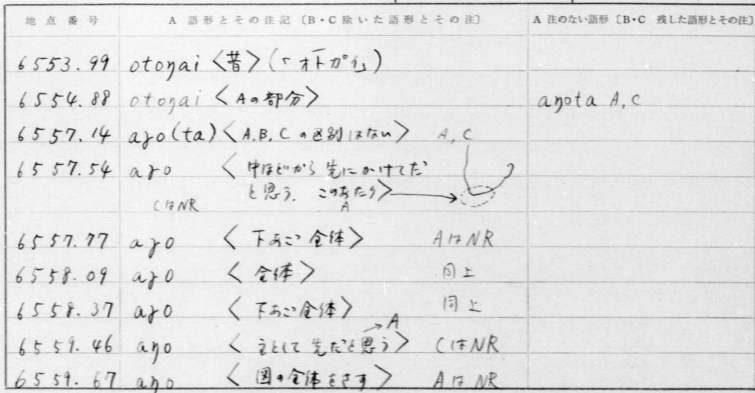 地点番号 A 語形とその注記〔B・C 除いた語形とその注〕 A 注のない語形〔B・C 残した語形とその注〕
6553.99 otoŋai <昔>(「オトガイ)
6554.88 otoŋai <Aの部分> aŋota A,C
6557.14 aɣo(ta) <A.B.Cの区別はない> A,C
6557.54 aɣo <中ほどから先にかけてだ
と思う. このあたり>
CはNR A
6557.77 aɣo <下あご全体> AはNR
6558.09 aɣo <全体> 同上
6558.37 aɣo <下あご全体> 同上
A
6559.46 aŋo <主として先だと思う> CはNR
6559.67 aŋo <図の全体をさす> AはNR